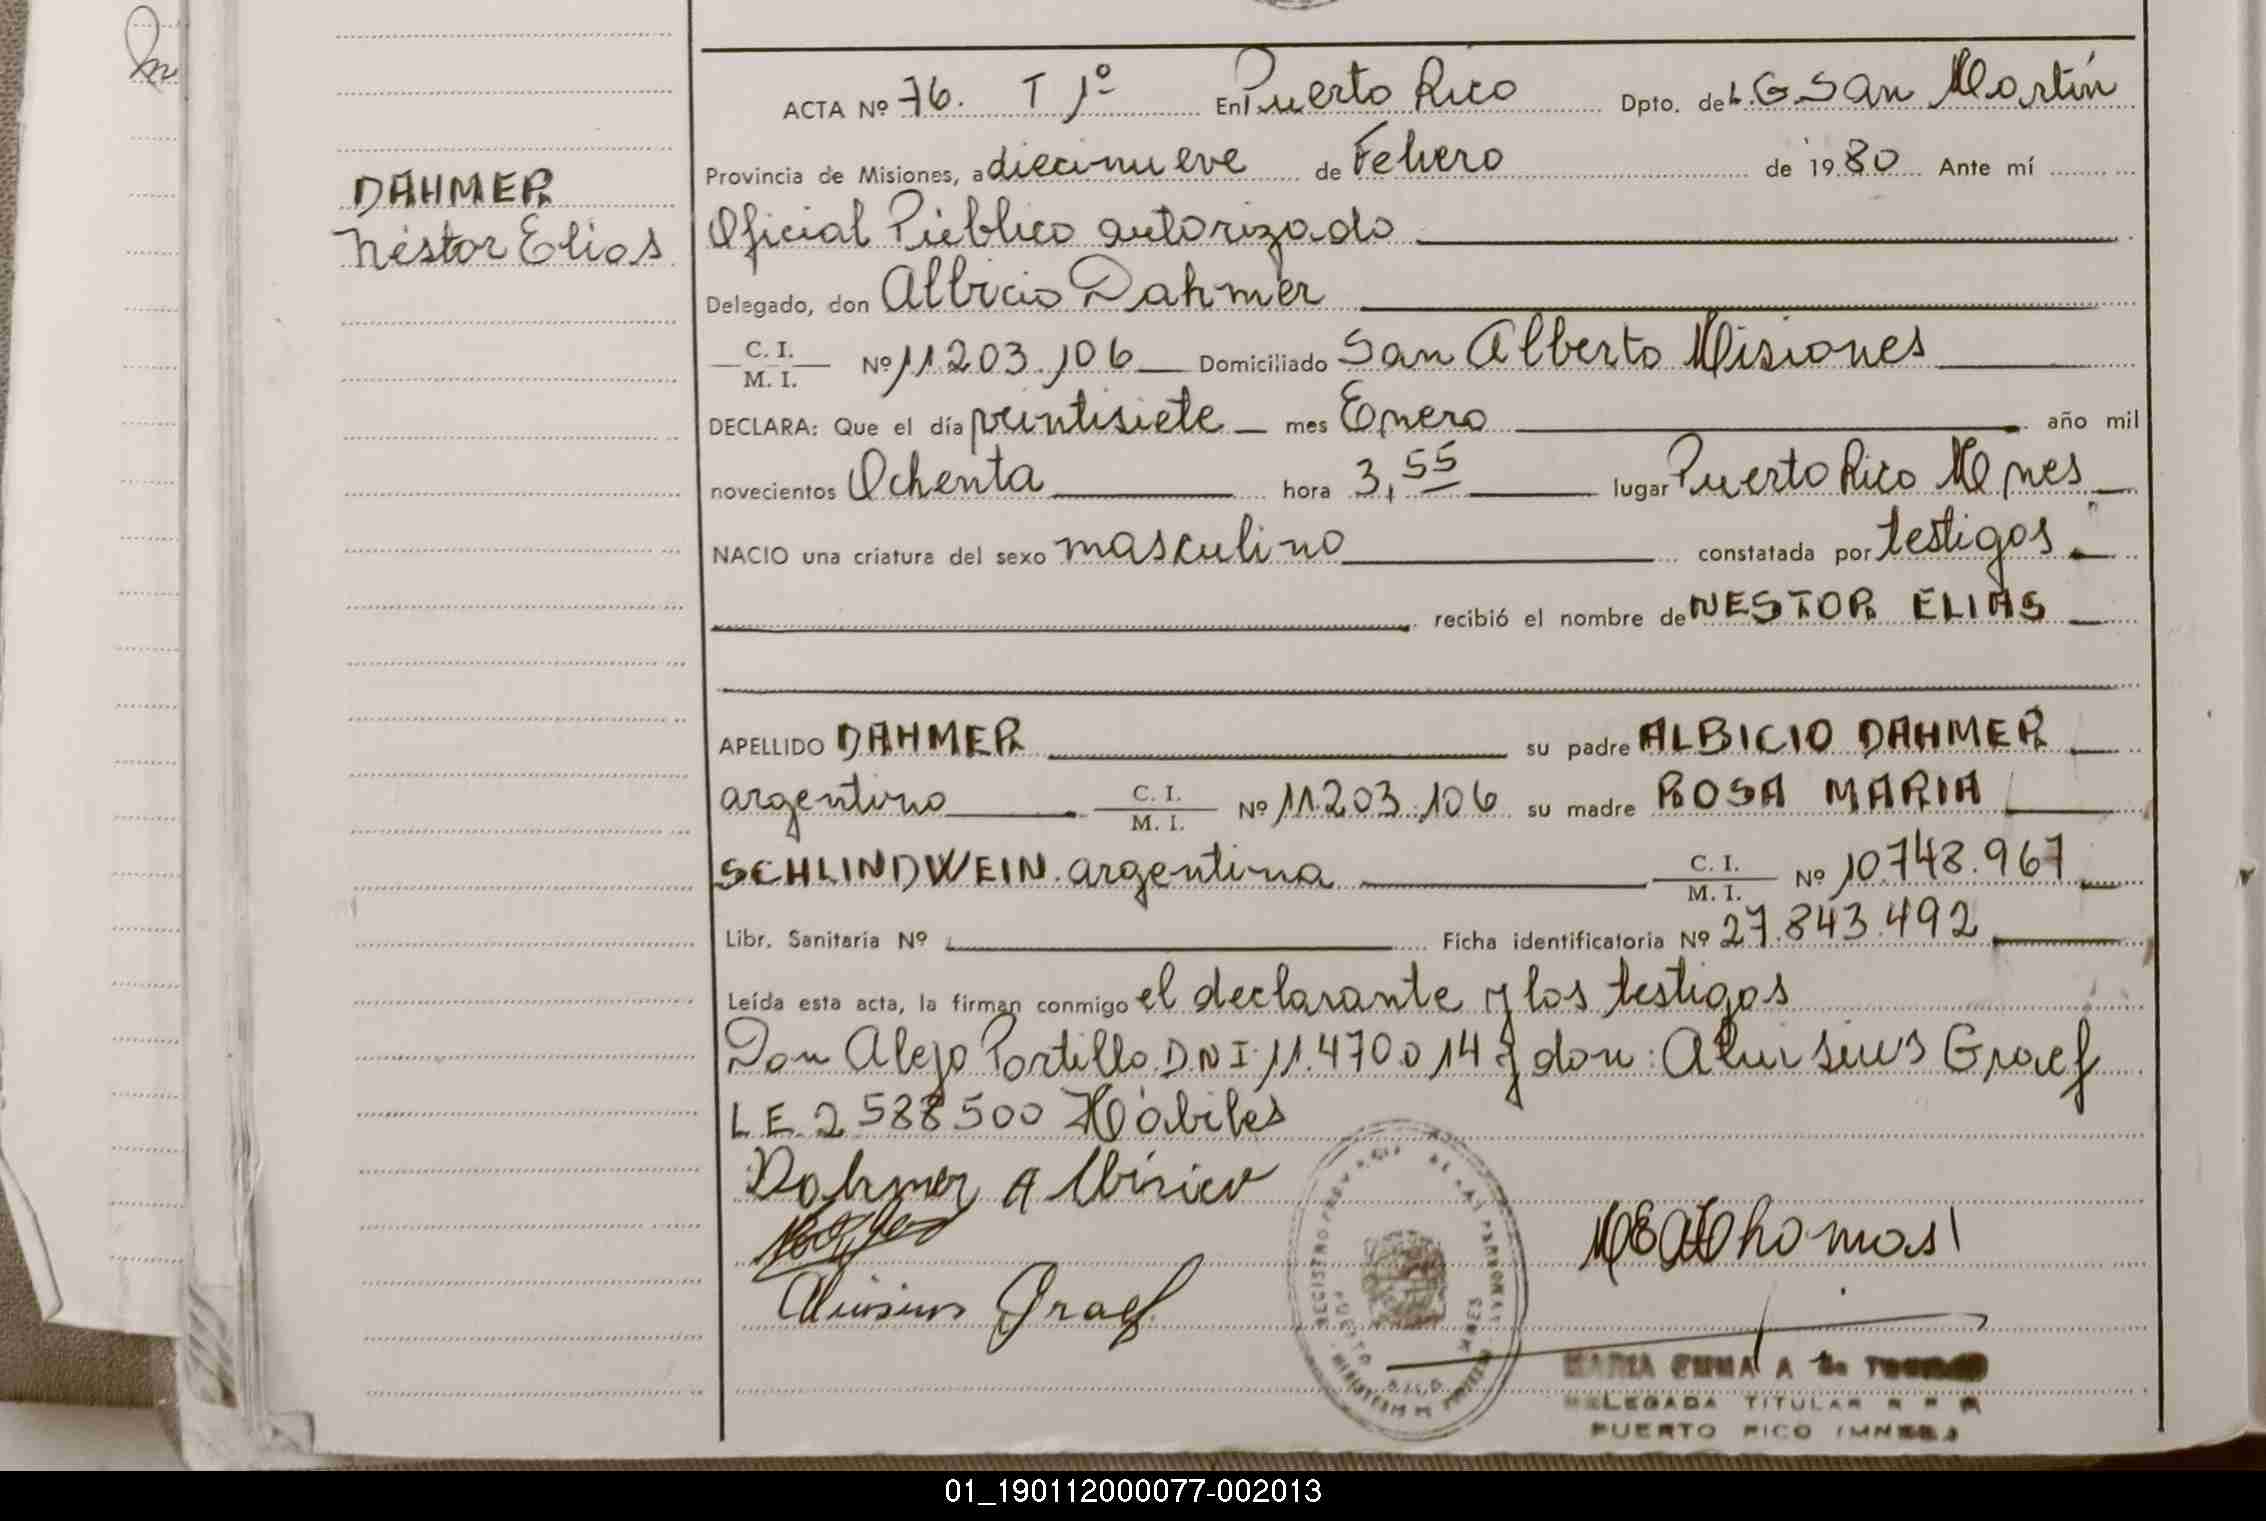 ACTA Nº 76. T 1º En Puerto Rico Dpto. de L. G San Martín
Provincia de Misiones, a diecinueve de Febrero de 1980 Ante mí
DAHMER
Oficial Público autorizado
Néstor Elías
Delegado, don Albicio Dahmer
C. I.
M. I. Nº 11.203.106 Domiciliado San Alberto Misiones
DECLARA: Que el día veintisiete mes Enero año mil
novecientos Ochenta hora 3,55 lugar Puerto Rico Mnes
NACIO una criatura del sexo masculino constatada por testigos
recibió el nombre de NESTOR ELIAS
APELLIDO DAHMER su padre ALBICIO DAHMER
argentino C. I.
M. I. Nº 11.203.106 su madre ROSA MARIA
SCHLINDWEIN argentina C. I.
M. I. Nº 10.748.967
Libr. Sanitaria Nº Ficha identificatoria Nº 27.843.492
Leída esta acta, la firman conmigo el declarante y los testigos
Don Alejo Portillo D.N.I. 11.470.014 y don: Aluisius Graef
L.E. 2 588 500 Hábiles
Dahmer Albisico
Aluisius Graef
MARIA EMMA A de
DELEGADA TITULAR R P P
PUERTO RICO (MNES.)
01_190112000077-002013